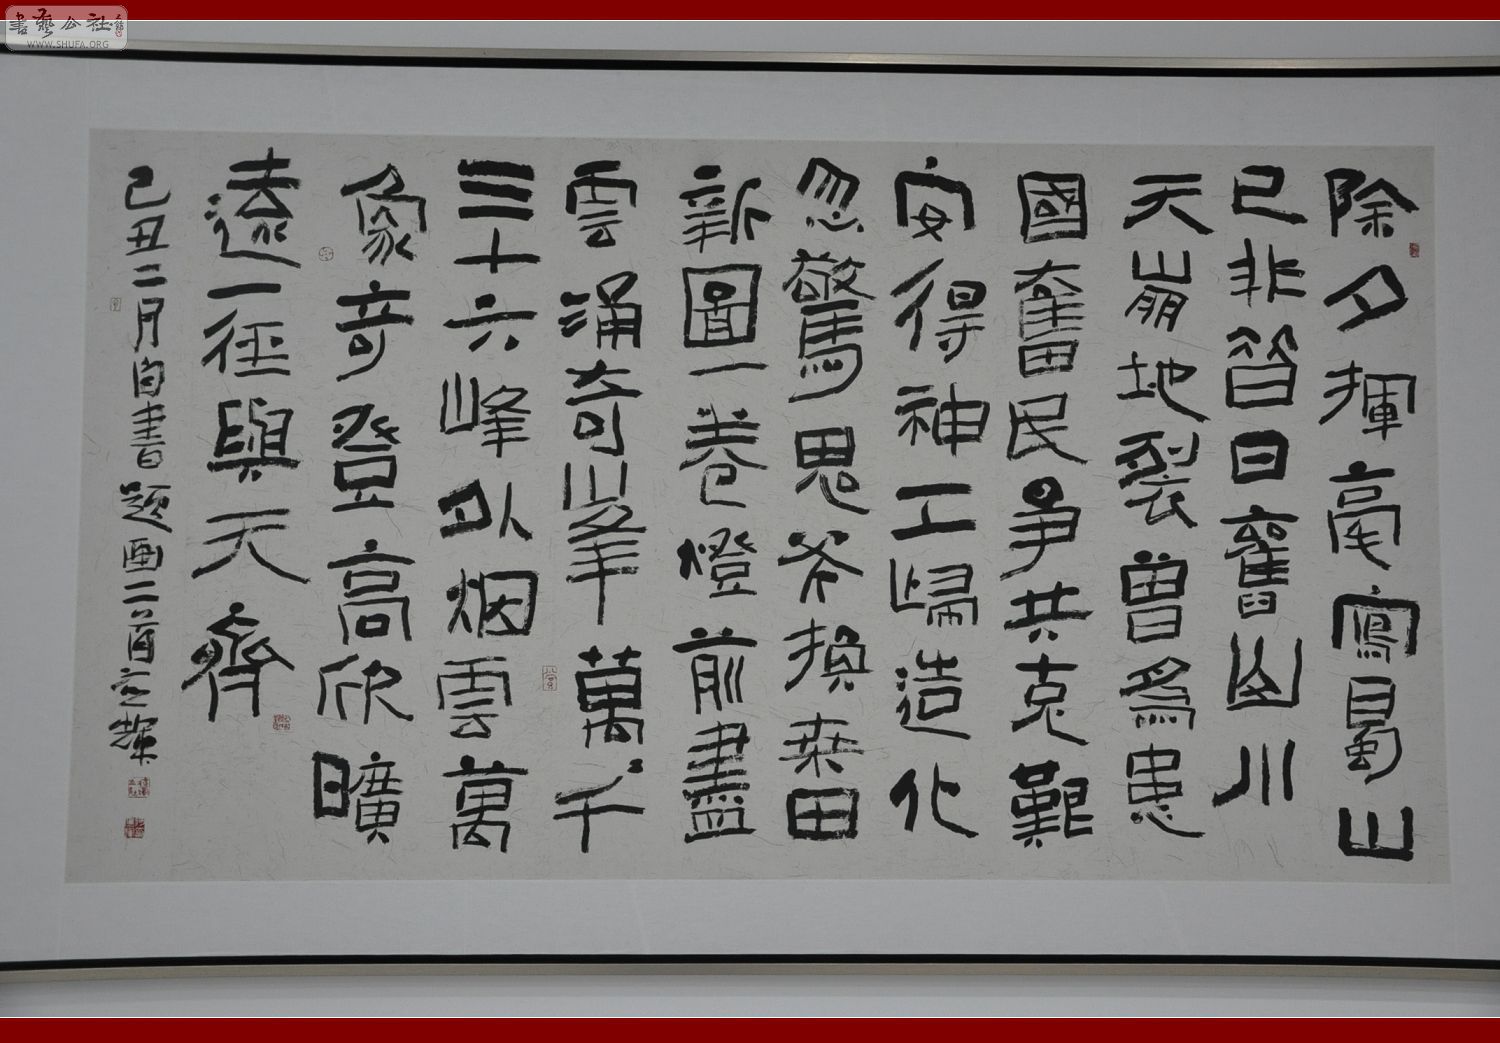 除夕揮毫寫蜀山
已非昔日舊山川
天崩地裂曾為患
國奮民爭共克艱
安得神工歸造化
忽驚鬼斧換桑田
新圖一卷燈前盡
雲涌奇峯萬千
三十六峰以烟雲萬
象奇登高欣曠
遠一徑與天齊
己丑二月自書題画二首
書藝公社
WWW.SHUFA.ORG